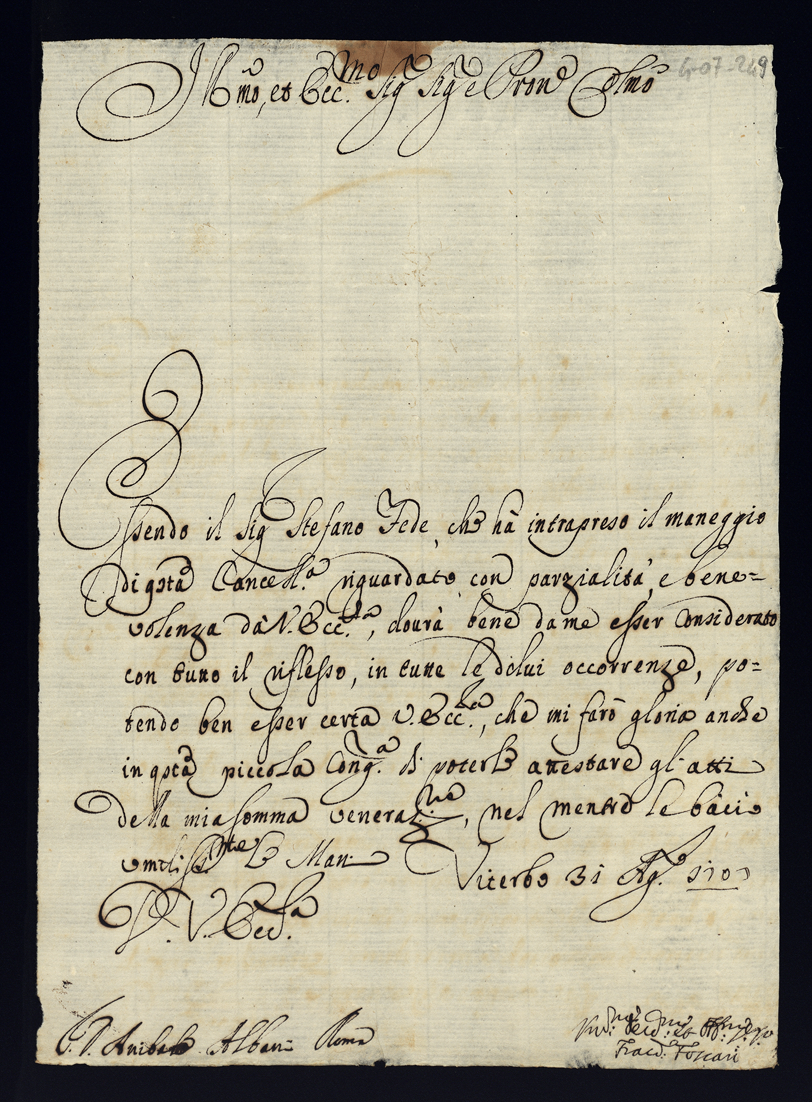 Ill.mo, et Ecc.mo Sig.r Sig.r e Pron.e Col.mo
G-07-249
Essendo il Sig.r Stefano Fede, che hà intrapreso il maneggio
di q.sta Cancell.a riguardato con parzialità, e bene=
volenza dà V. Ecc.za, dourà bene da me esser considerato
con tutto il riflesso, in tutte le di lui occorrenze, po=
tendo ben esser certa V. Ecc.za, che mi farò gloria anche
in q.sta piccola Cong.a di poterle attestare gl'atti
della mia somma veneraz.ne, nel mentre le bacio
umiliss.mte le Man: Viterbo 31 Ag.o 1707
D. V. Ecc.za
D. Anibale Albani Roma
Foscari